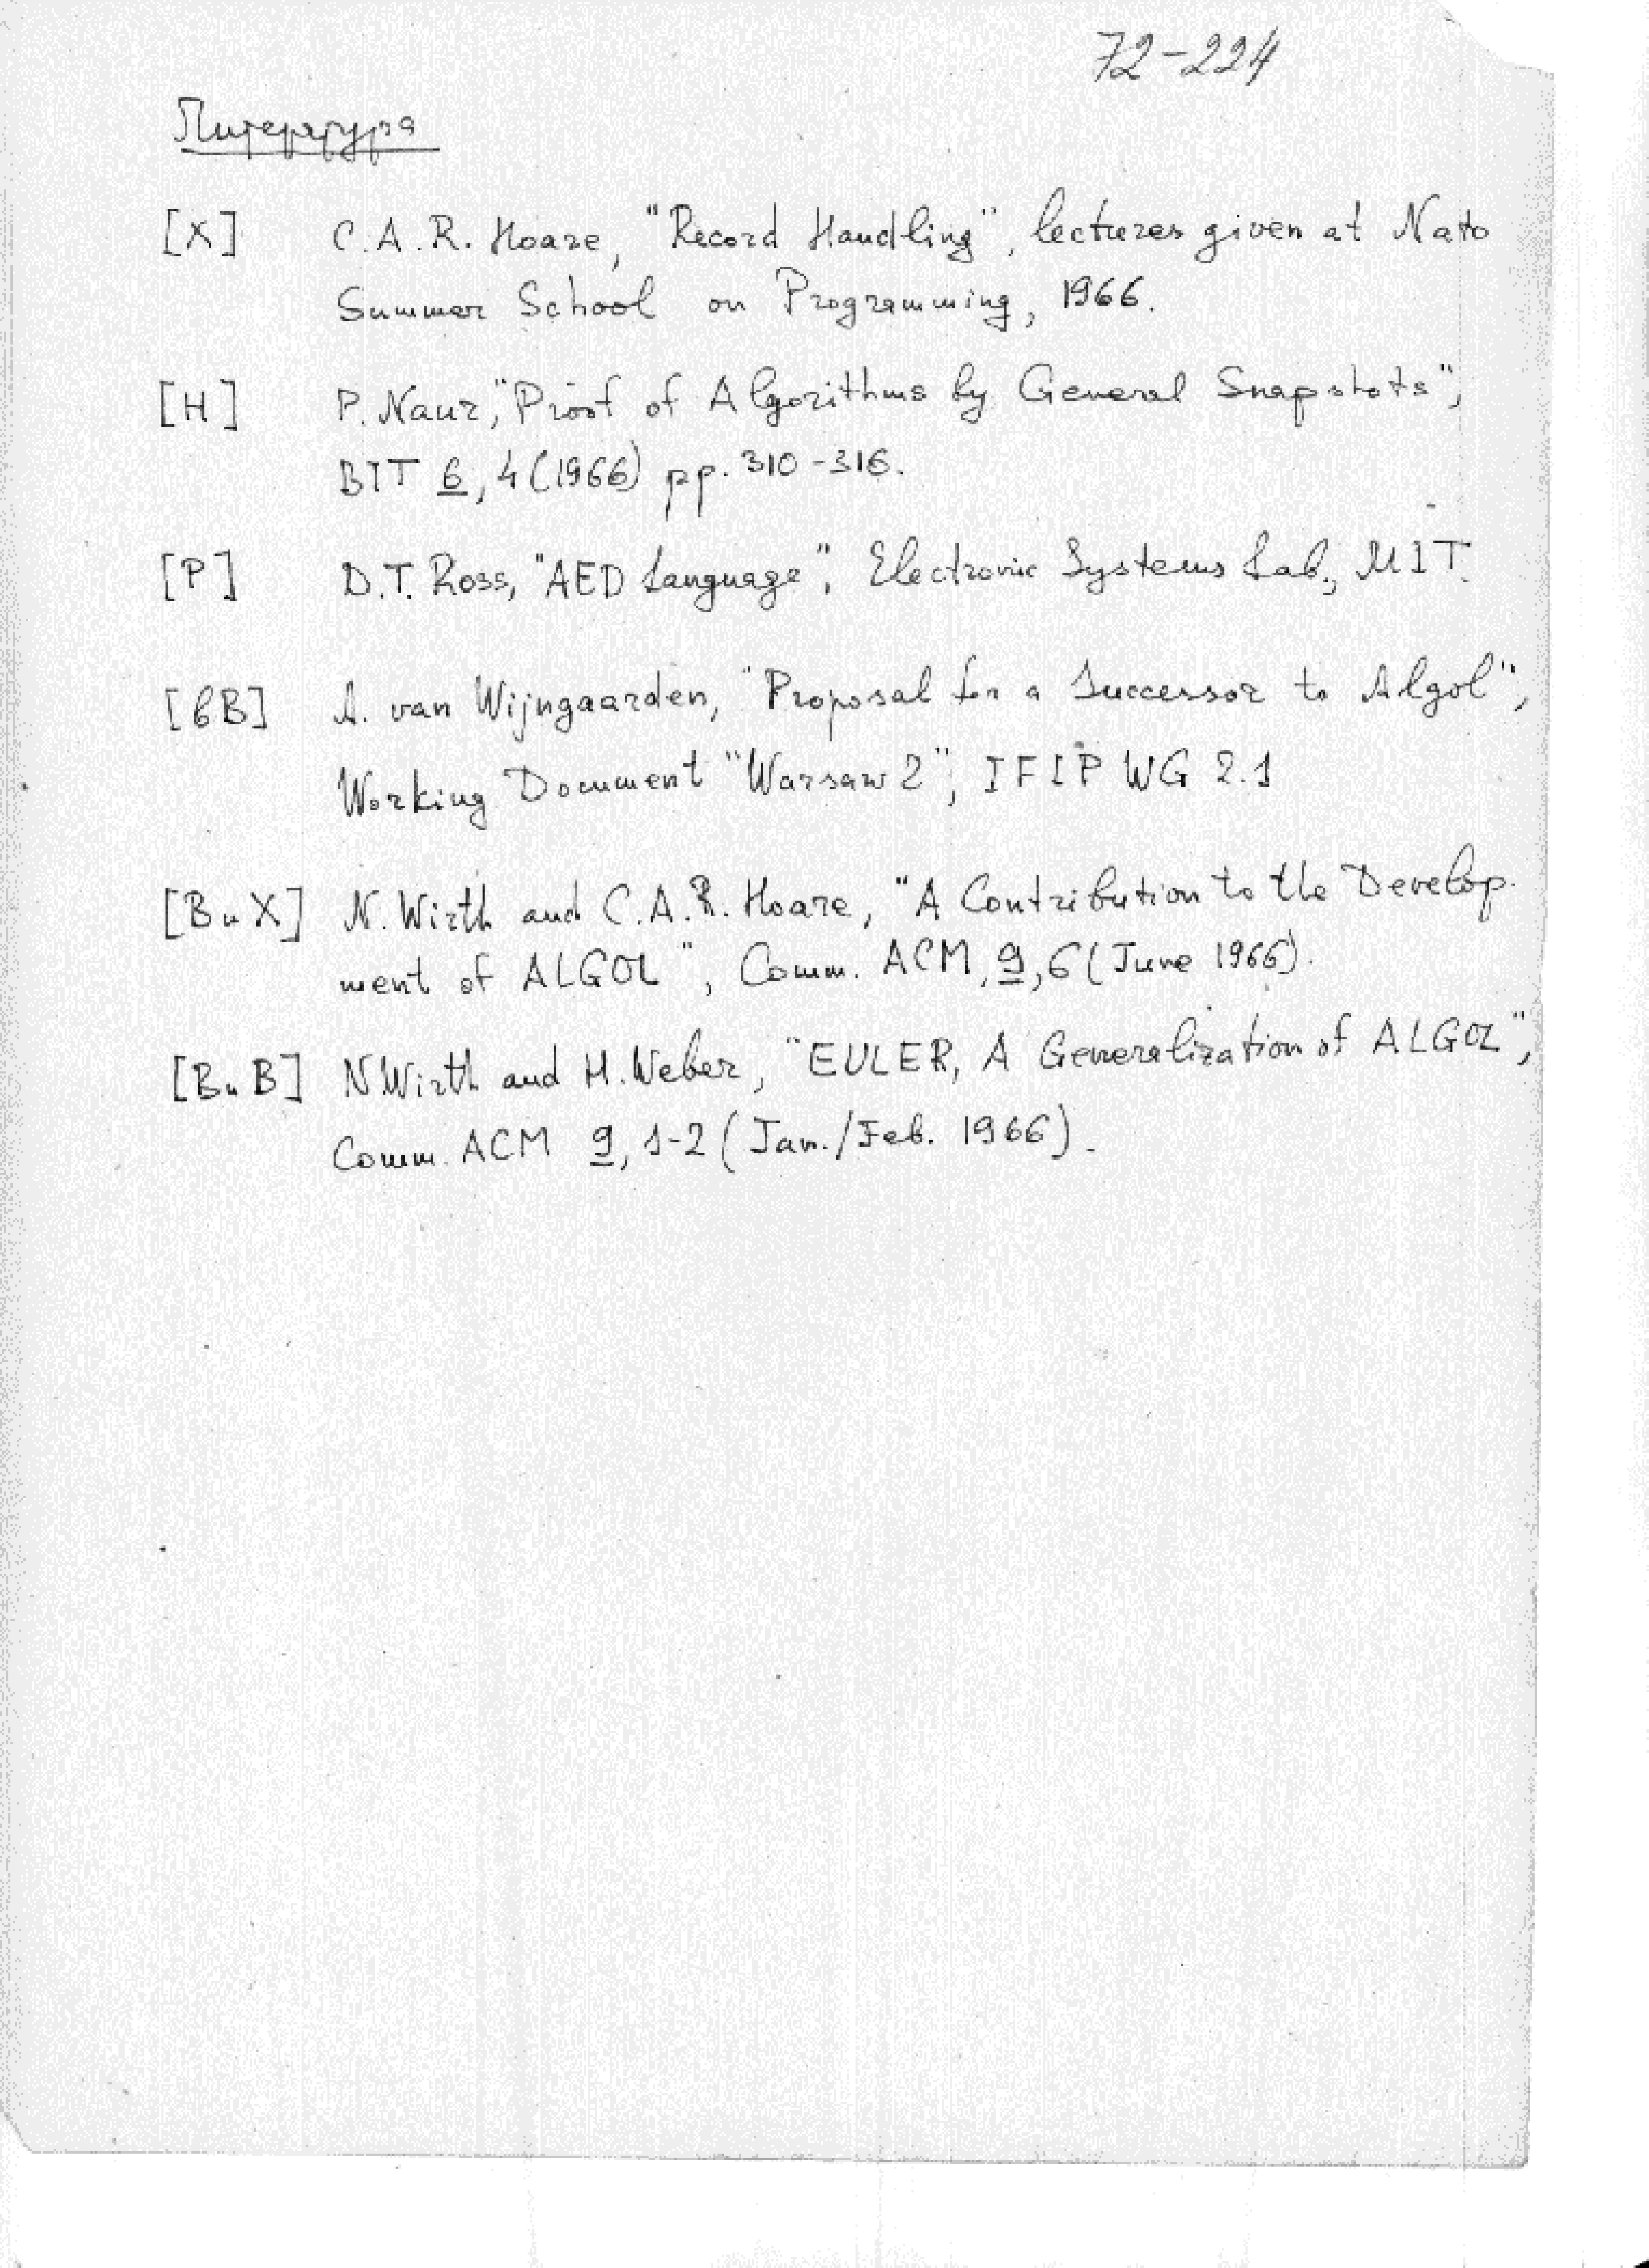 72-224
Литература
[Х] C.A.R. Hoare, "Record Handling", lectures given at Nato
Summer School on Programming, 1966.
[Н] P. Naur, "Proof of Algorithms by General Snapshots",
BIT 6, 4 (1966) pp. 310-316.
[Р] D.T. Ross, "AED Language", Electronic Systems Lab., MIT.
[вВ] A. van Wijngaarden, "Proposal for a Successor to Algol",
Working Document "Warsaw 2", IFIP WG 2.1
[ВиХ] N. Wirth and C.A.R. Hoare, "A Contribution to the Develop-
ment of ALGOL", Comm. ACM, 9, 6 (June 1966).
[ВиВ] N Wirth and H. Weber, "EULER, A Generalization of ALGOL",
Comm. ACM 9, 1-2 (Jan./Feb. 1966).